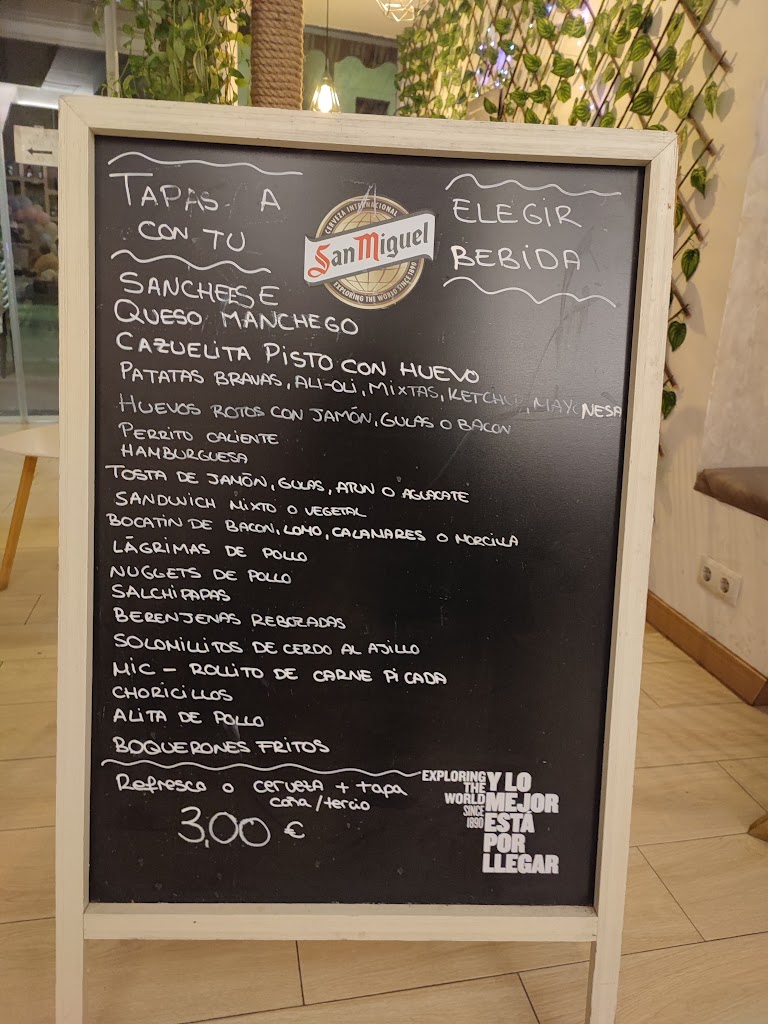 TAPAS A ELEGIR
CON TU BEBIDA
CERVEZA INTERNACIONAL
San Miguel
EXPLORING THE WORLD SINCE 1890
SANCHEESE
QUESO MANCHEGO
CAZUELITA PISTO CON HUEVO
PATATAS BRAVAS, ALI-OLI, MIXTAS, KETCHUP, MAYONESA
HUEVOS ROTOS CON JAMÓN, GULAS O BACON
PERRITO CALIENTE
HAMBURGUESA
TOSTA DE JAMÓN, GULAS, ATUN O AGUACATE
SANDWICH MIXTO O VEGETAL
BOCATIN DE BACON, LOMO, CALAMARES O MORCILLA
LÁGRIMAS DE POLLO
NUGGETS DE POLLO
SALCHIPAPAS
BERENJENAS REBOZADAS
SOLOMILLITOS DE CERDO AL AJILLO
MIC - ROLLITO DE CARNE PICADA
CHORICILLOS
ALITA DE POLLO
BOQUERONES FRITOS
Refresco o cerveza + tapa
caña/tercio
3,00 €
EXPLORING
THE
WORLD
SINCE
1890
Y LO
MEJOR
ESTÁ
POR
LLEGAR